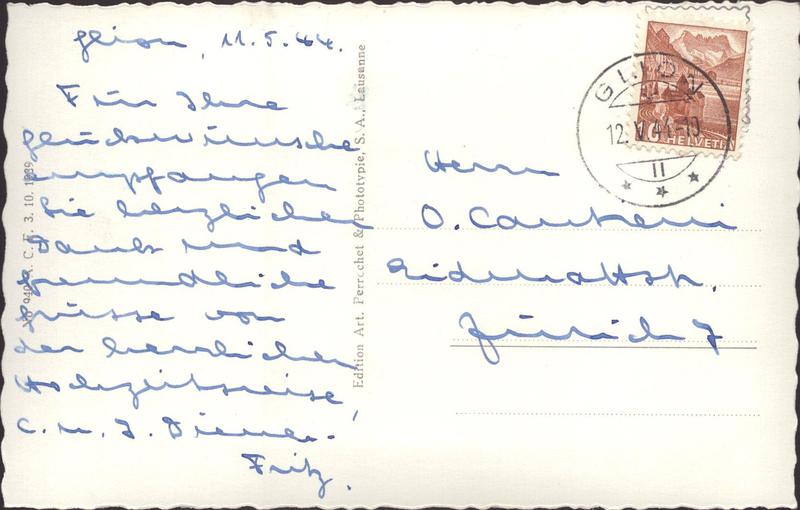 Glion, 11.5.44.
Für Ihre
Glückwünsche
empfangen
Sie herzlichen
Dank und
freundliche
Grüsse von
der herrlichen
Hochzeitsreise,
C. u. J. Diener-
Fritz.
Edition Art. Perrochet & Phototypie, S. A., Lausanne
3. 10. 1939
GLION
12.V.44-10
II
HELVETIA
Herrn
O.
Eidmattstr.
Zürich 7